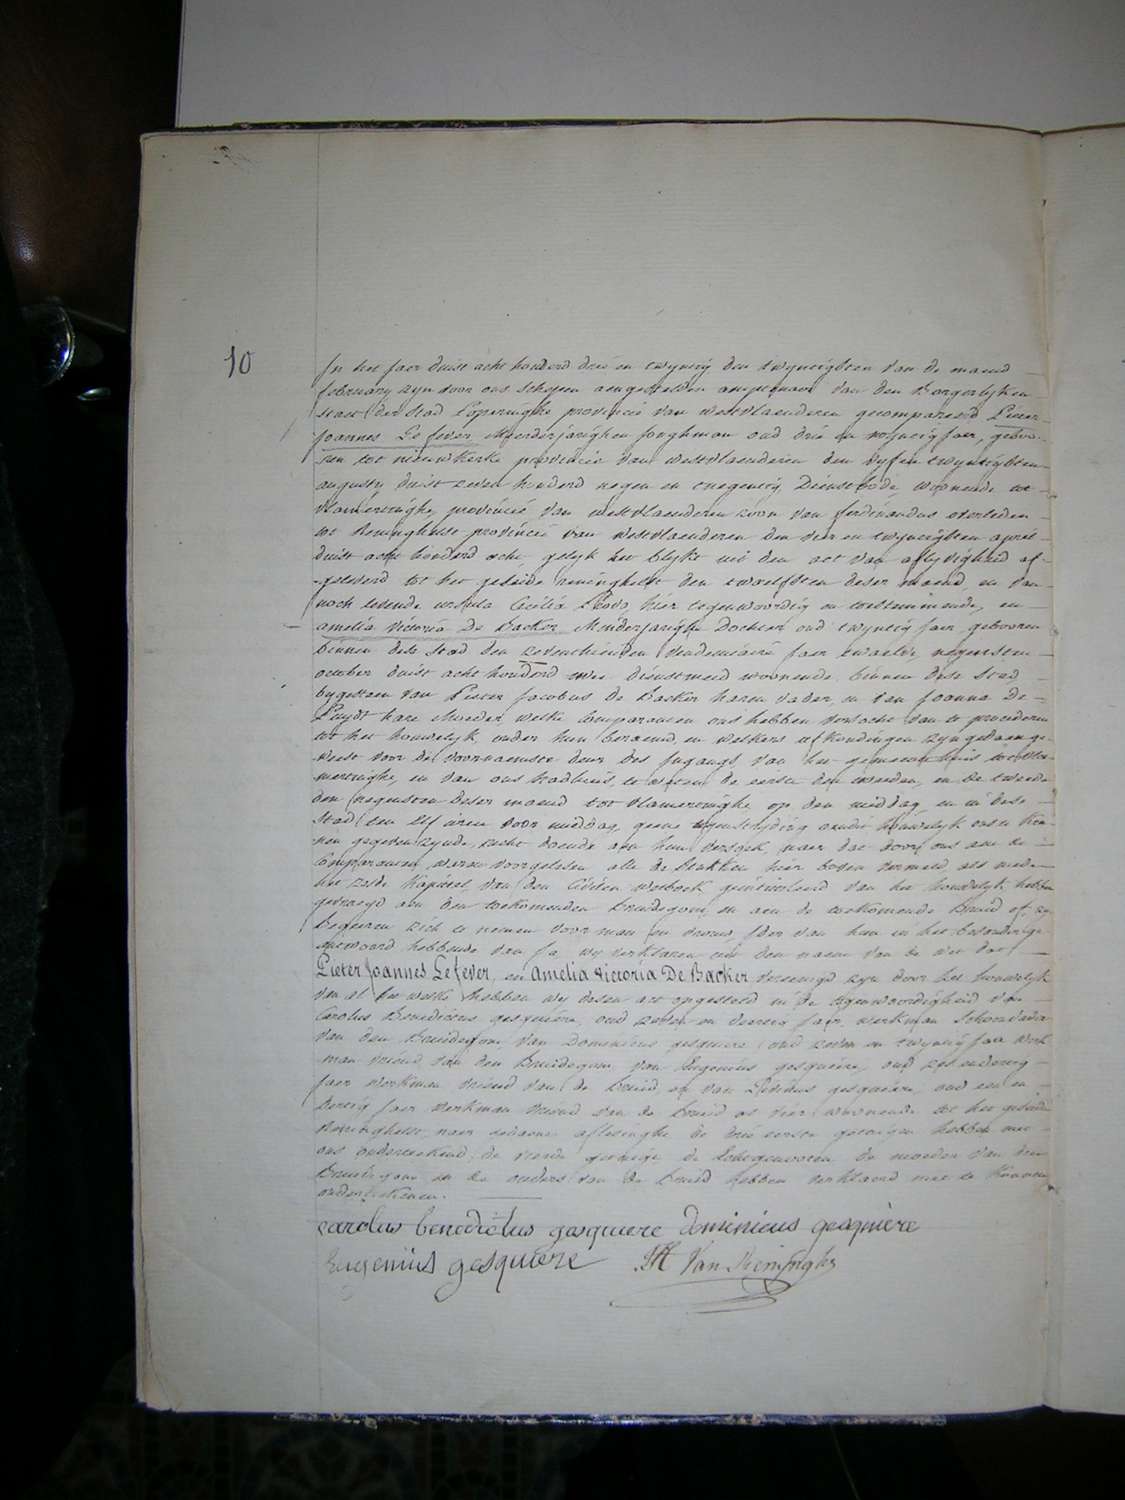 10
In het jaer duist acht honderd drie en twyntig den twyntigsten van de maend
february zyn voor ons schepen aengestelden amptenaer van den Borgerlyken
staet der stad Poperinghe provincie van westvlaenderen gecompareerd Pieter
Joannes Lefever Meerderjarighen Jonghman oud drie en twyntig jaer, geboo-
ren tot nieuwkerke provincie van westvlaenderen den vyfen twyntigsten
augusty duist zeven honderd negen en tnegentig Dienstbode, woonende tot
vlamertinghe, provincie van westvlaenderen zoon van ferdinandus overleden
tot Reninghelst provincie van westvlaenderen den vier en twyntigsten april
duist acht honderd acht, gelyk het blykt uit den act van aflyvigheid af-
geleverd tot het gezeide reninghelst den twaelfsten deser maend, en van
noch levende ursula Cecilia, hier tegenwoordig en toestemmende, en
amelia victoria De Backer Minderjarighe Dochter oud twyntig jaer, gebooren
binnen dese stad den zeventhienden vendemiaire jaer twaelf, negensten
october duist acht honderd dienstmeid woonende binnen dese stad
bygestaen van Pieter Jacobus de Backer haren vader, en van Joanna De-
Puydt hare Moeder, welke Comparanten ons hebben versocht van te procederen
tot het houwelyk onder hun beraemd, en welkers afkondingen zyn gedaen ge-
weest voor de voornaemste deur des Ingangs van het gemeente huis tot vla-
mertinghe, en van ons stadhuis, te weten de eerste den tweeden, en de tweede
den negensten deser maend tot vlamertinghe op den middag en in dese
stad ten elf uren voor middag, geene tegenstryding aen dit houwelyk ons
gegeven zynde, recht doende aen hun versoek, naer dat door ons aen de
Comparanten waren voorgelesen alle de stukken hier boven vermeld als mede
het zesde kapittel van den Civilen wetboek geintituleerd van het houwelyk hebben
gevraegd aen den toekomenden Bruidegom, en aen de toekomende Bruid of zy
begeeren zich te nemen voor man en vrouw, Ider van hun in het besonder ge-
antwoord hebbende van Ja, wy verklaren in den naem van de wet dat
Pieter Joannes Lefever, en Amelia victoria De Backer vereenigd zyn door het houwelyk
van al het welke hebben wy desen act opgesteld in de tegenwoordigheid van
Carolus Benedictus gesquiere, oud zeven en veertig jaer, werkman
van den Bruidegom, van Dominicus gesquiere oud zeven en twyntig jaer werk-
man vriend van den Bruidegom, van Eugenius gesquiere, oud
jaer werkman vriend van de Bruid, en van gesquiere, oud een en
dertig jaer werkman vriend van de Bruid alle vier woonende tot het gezeide
Reninghelst, naer gedaene aflesinghe de drie eerste getuigen hebben met
ons onderteekend, de vierde getuige de Echtgenooten de moeder van den
Bruidegom en de ouders van de Bruid hebben verklaerd niet te konnen
onderteekenen.
carolus benedictus gesquiere dominicus gesquiere
Eugenius gesquiere Van Reninghe